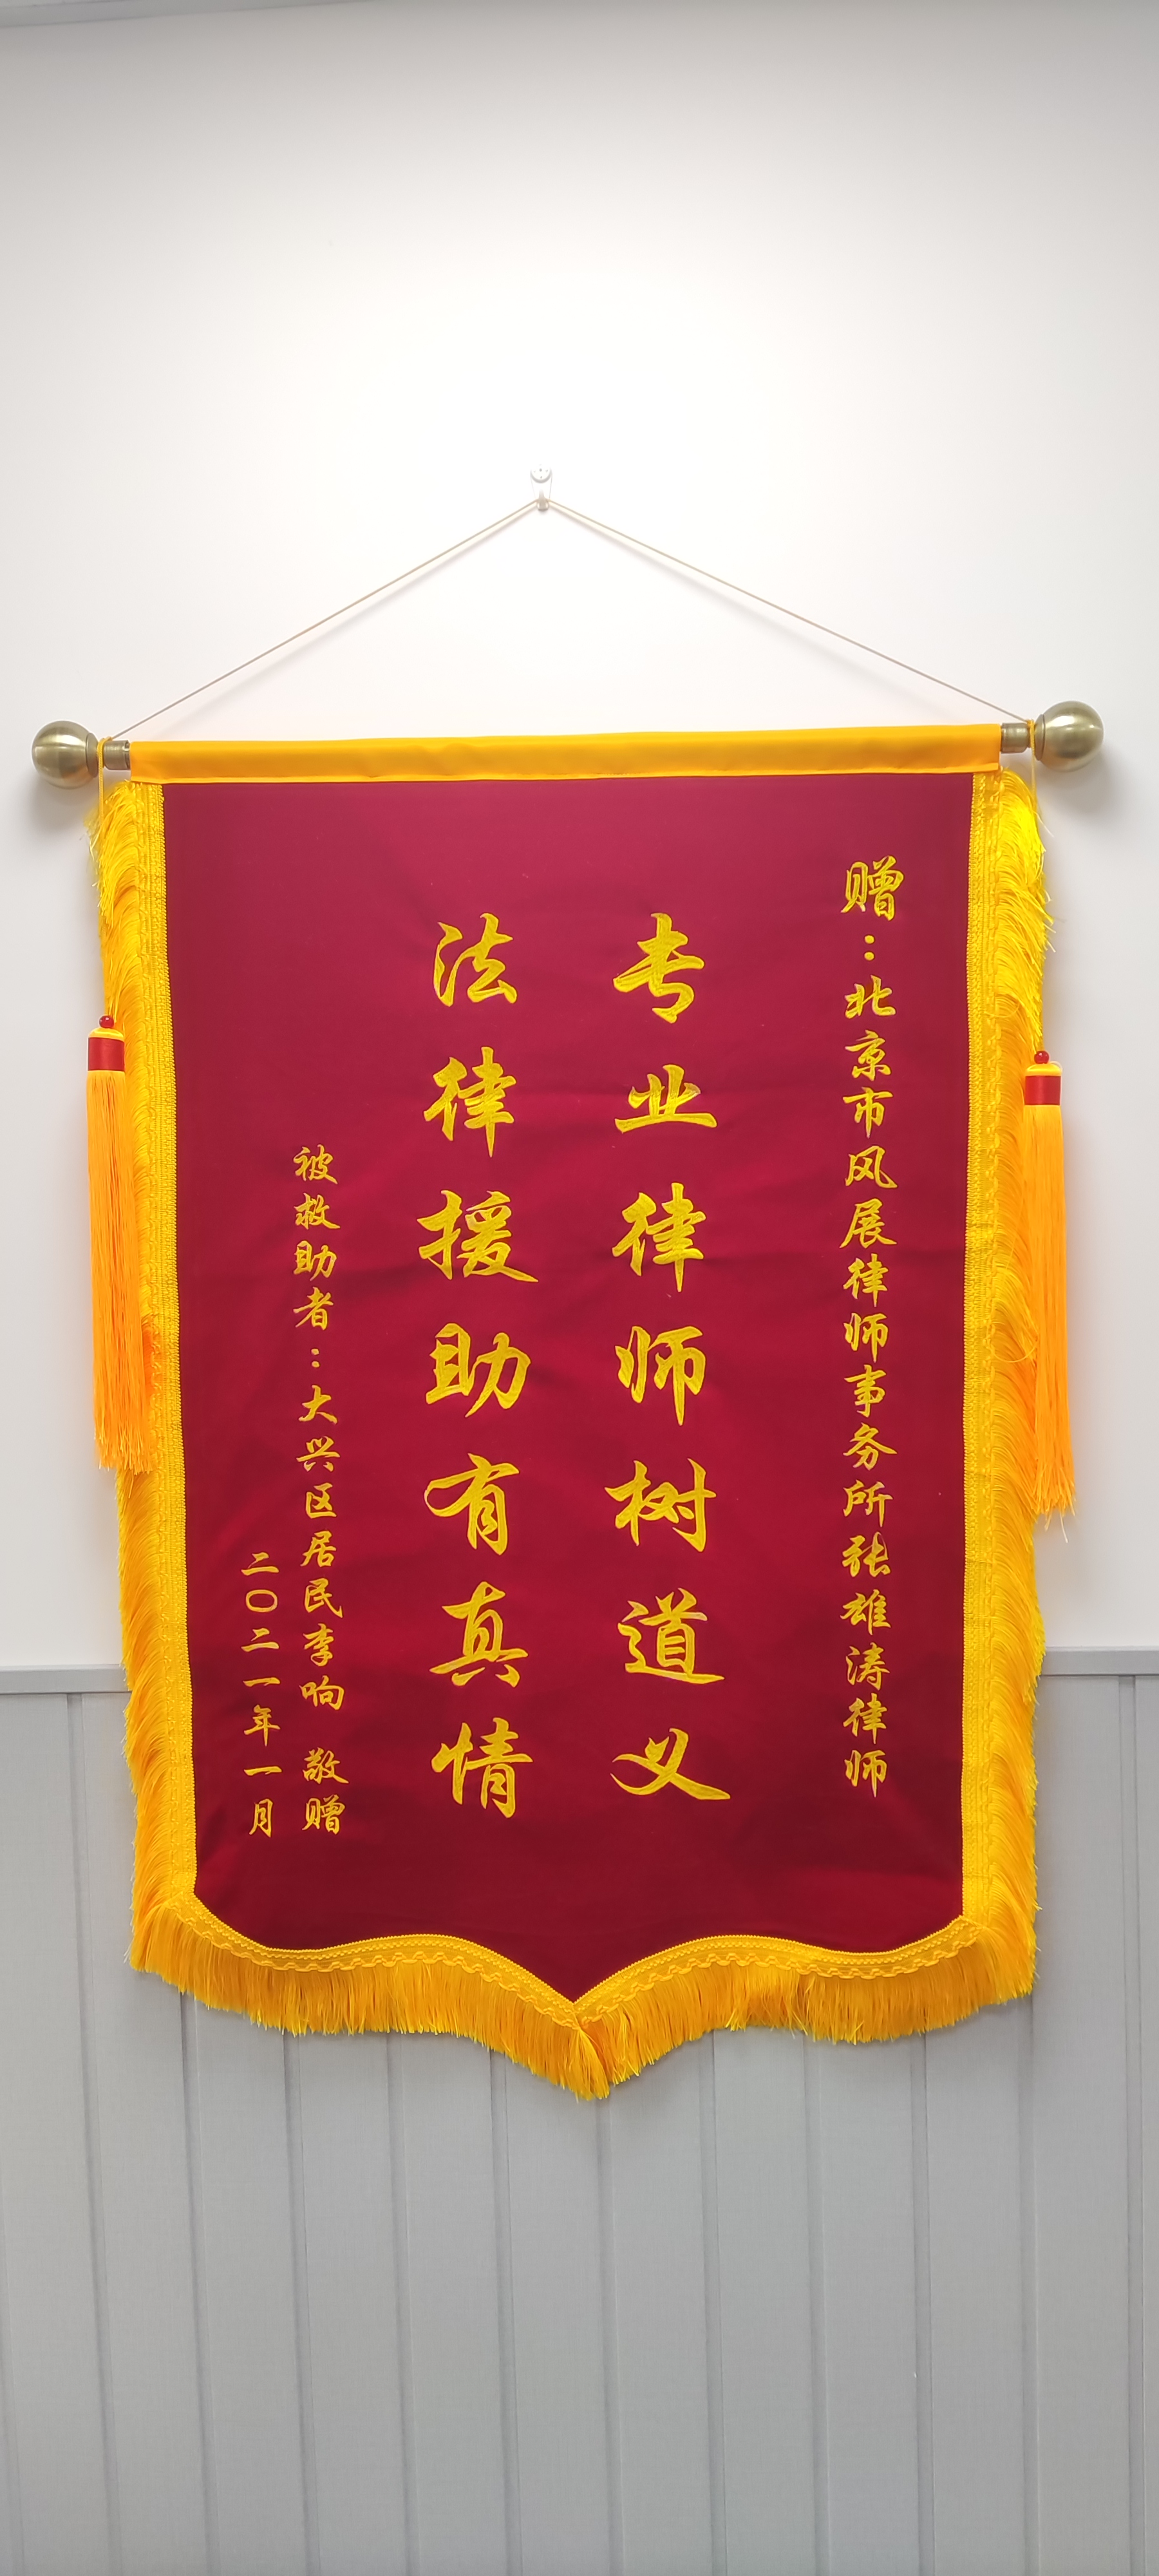 赠：北京市风展律师事务所张雄涛律师
专业律师树道义
法律援助有真情
被救助者：大兴区居民李响 敬赠
二〇二一年一月